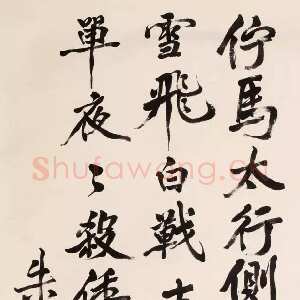 佇馬太行側
雪飛白戰士
單夜々殺倭
朱
Shufawang.cn